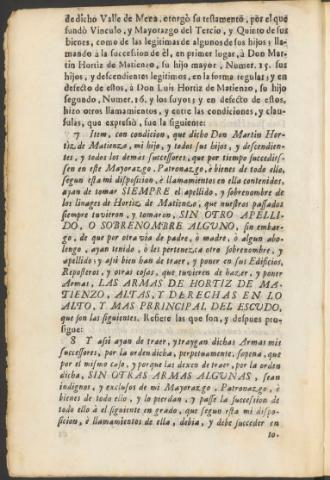 de dicho Valle de Mena, otorgò su testamento, por el que
fundò Vinculo, y Mayorazgo del Tercio, y Quinto de sus
bienes, como de las legitimas de algunos de sus hijos; lla-
mando à la succession de èl, en primer lugar, à Don Mar-
tin Hortiz de Matienzo, su hijo mayor, Numer. 15. sus
hijos, y descendientes legitimos, en la forma regular; y en
defecto de estos, à Don Luis Hortiz de Matienzo, su hijo
segundo, Numer. 16. y los suyos; y en defecto de estos,
hizo otros llamamientos, y entre las condiciones, y clau-
sulas, que expressò, fue la siguiente:
7 Item, con condicion, que dicho Don Martin Hor-
tiz de Matienza, mi hijo, y todos sus hijos, y descendien-
tes, y todos los demas successores, que por tiempo succedies-
sen en este Mayorazgo, Patronazgo, è bienes de todo ello,
segun esta mi disposicion, è llamamientos en ella contenidos,
ayan de tomar SIEMPRE el apellido, y sobrenombre de
los linages de Hortiz de Matienzo, que nuestros passados
siempre tuvieron, y tomaron, SIN OTRO APELLI-
DO, O SOBRENOMBRE ALGUNO, sin embar-
go, de que por otra via de padre, ò madre, ò algun abo-
lengo, ayan tenido, ò les pertenezca otro sobrenombre, y
apellido; y assi bien han de traer, y poner en sus Edificios,
Reposteros, y otras cosas, que tuvieren de hazer, y poner
Armas, LAS ARMAS DE HORTIZ DE MA-
TIENZO, ALTAS, Y DERECHAS EN LO
ALTO, Y MAS PRRINCIPAL DEL ESCUDO,
que son las siguientes. Refiere las que son, y despues pro-
sigue:
8 Y assi ayan de traer, y traygan dichas Armas mis
successores, por la orden dicha, perpetuamente, sopena, que
por el mismo caso, y porque las dexen de traer, por la orden
dicha, SIN OTRAS ARMAS ALGUNAS, sean
indignos, y exclusos de mi Mayorazgo, Patronazgo, è
bienes de todo ello, y lo pierdan, y passe la succession de
todo ello à el siguiente en grado, que segun esta mi dispo-
sicion, è llamamientos de ella, debia, y debe succeder en
lo-